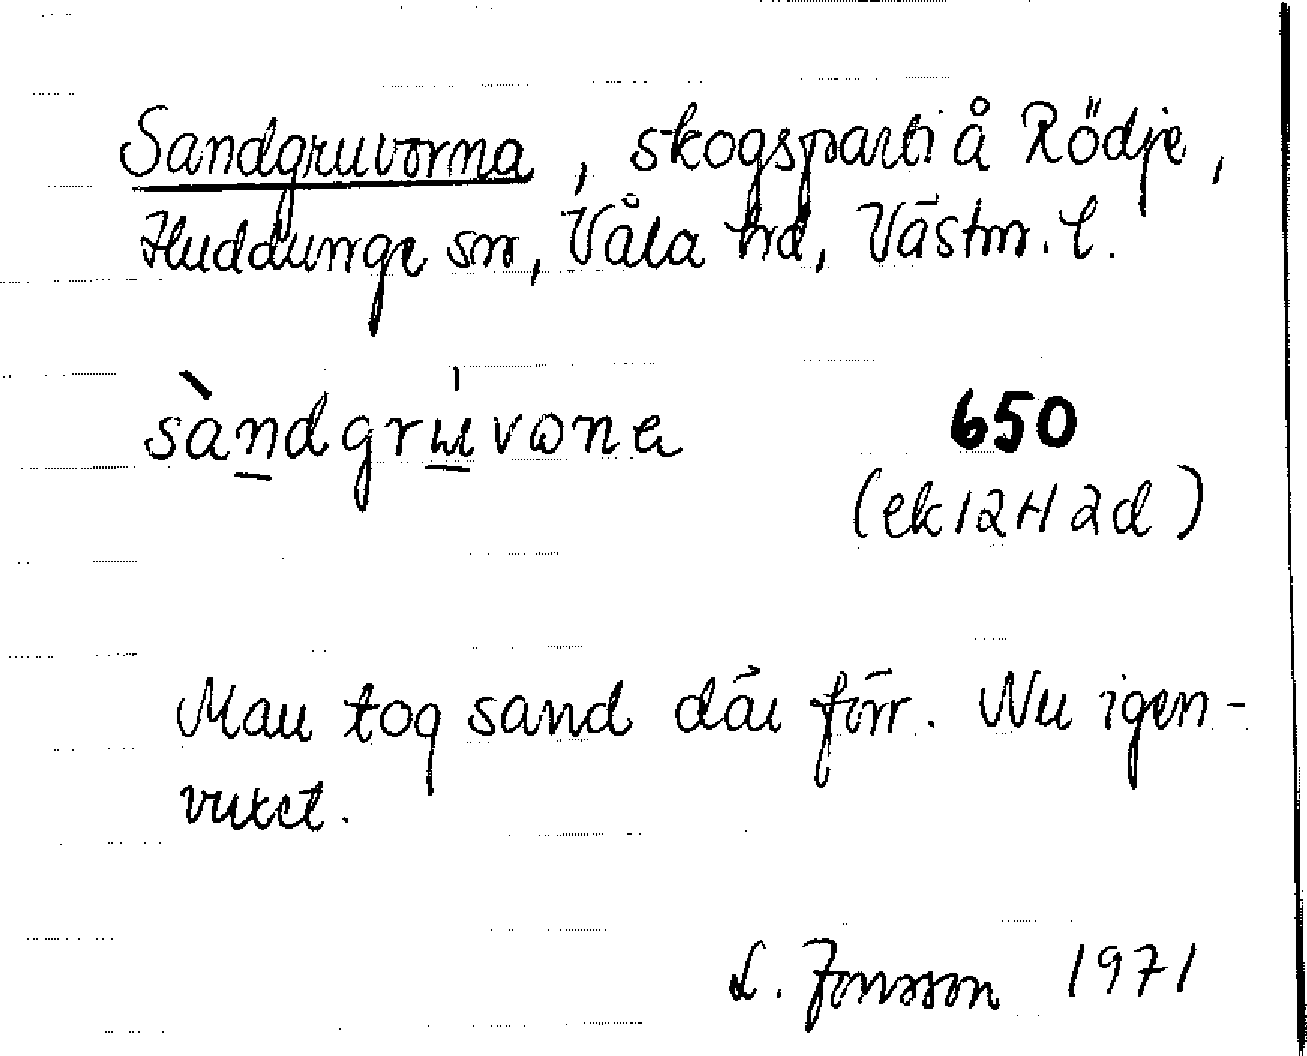 Sandgruvorna, skogsparti å Rödje,
Huddunge sn, Våla hd, Västm. l.
sàndgrùvωna
650
(ek 12H 2d)
Man tog sand där förr. Nu igen-
vuxet.
L. Jonsson 1971